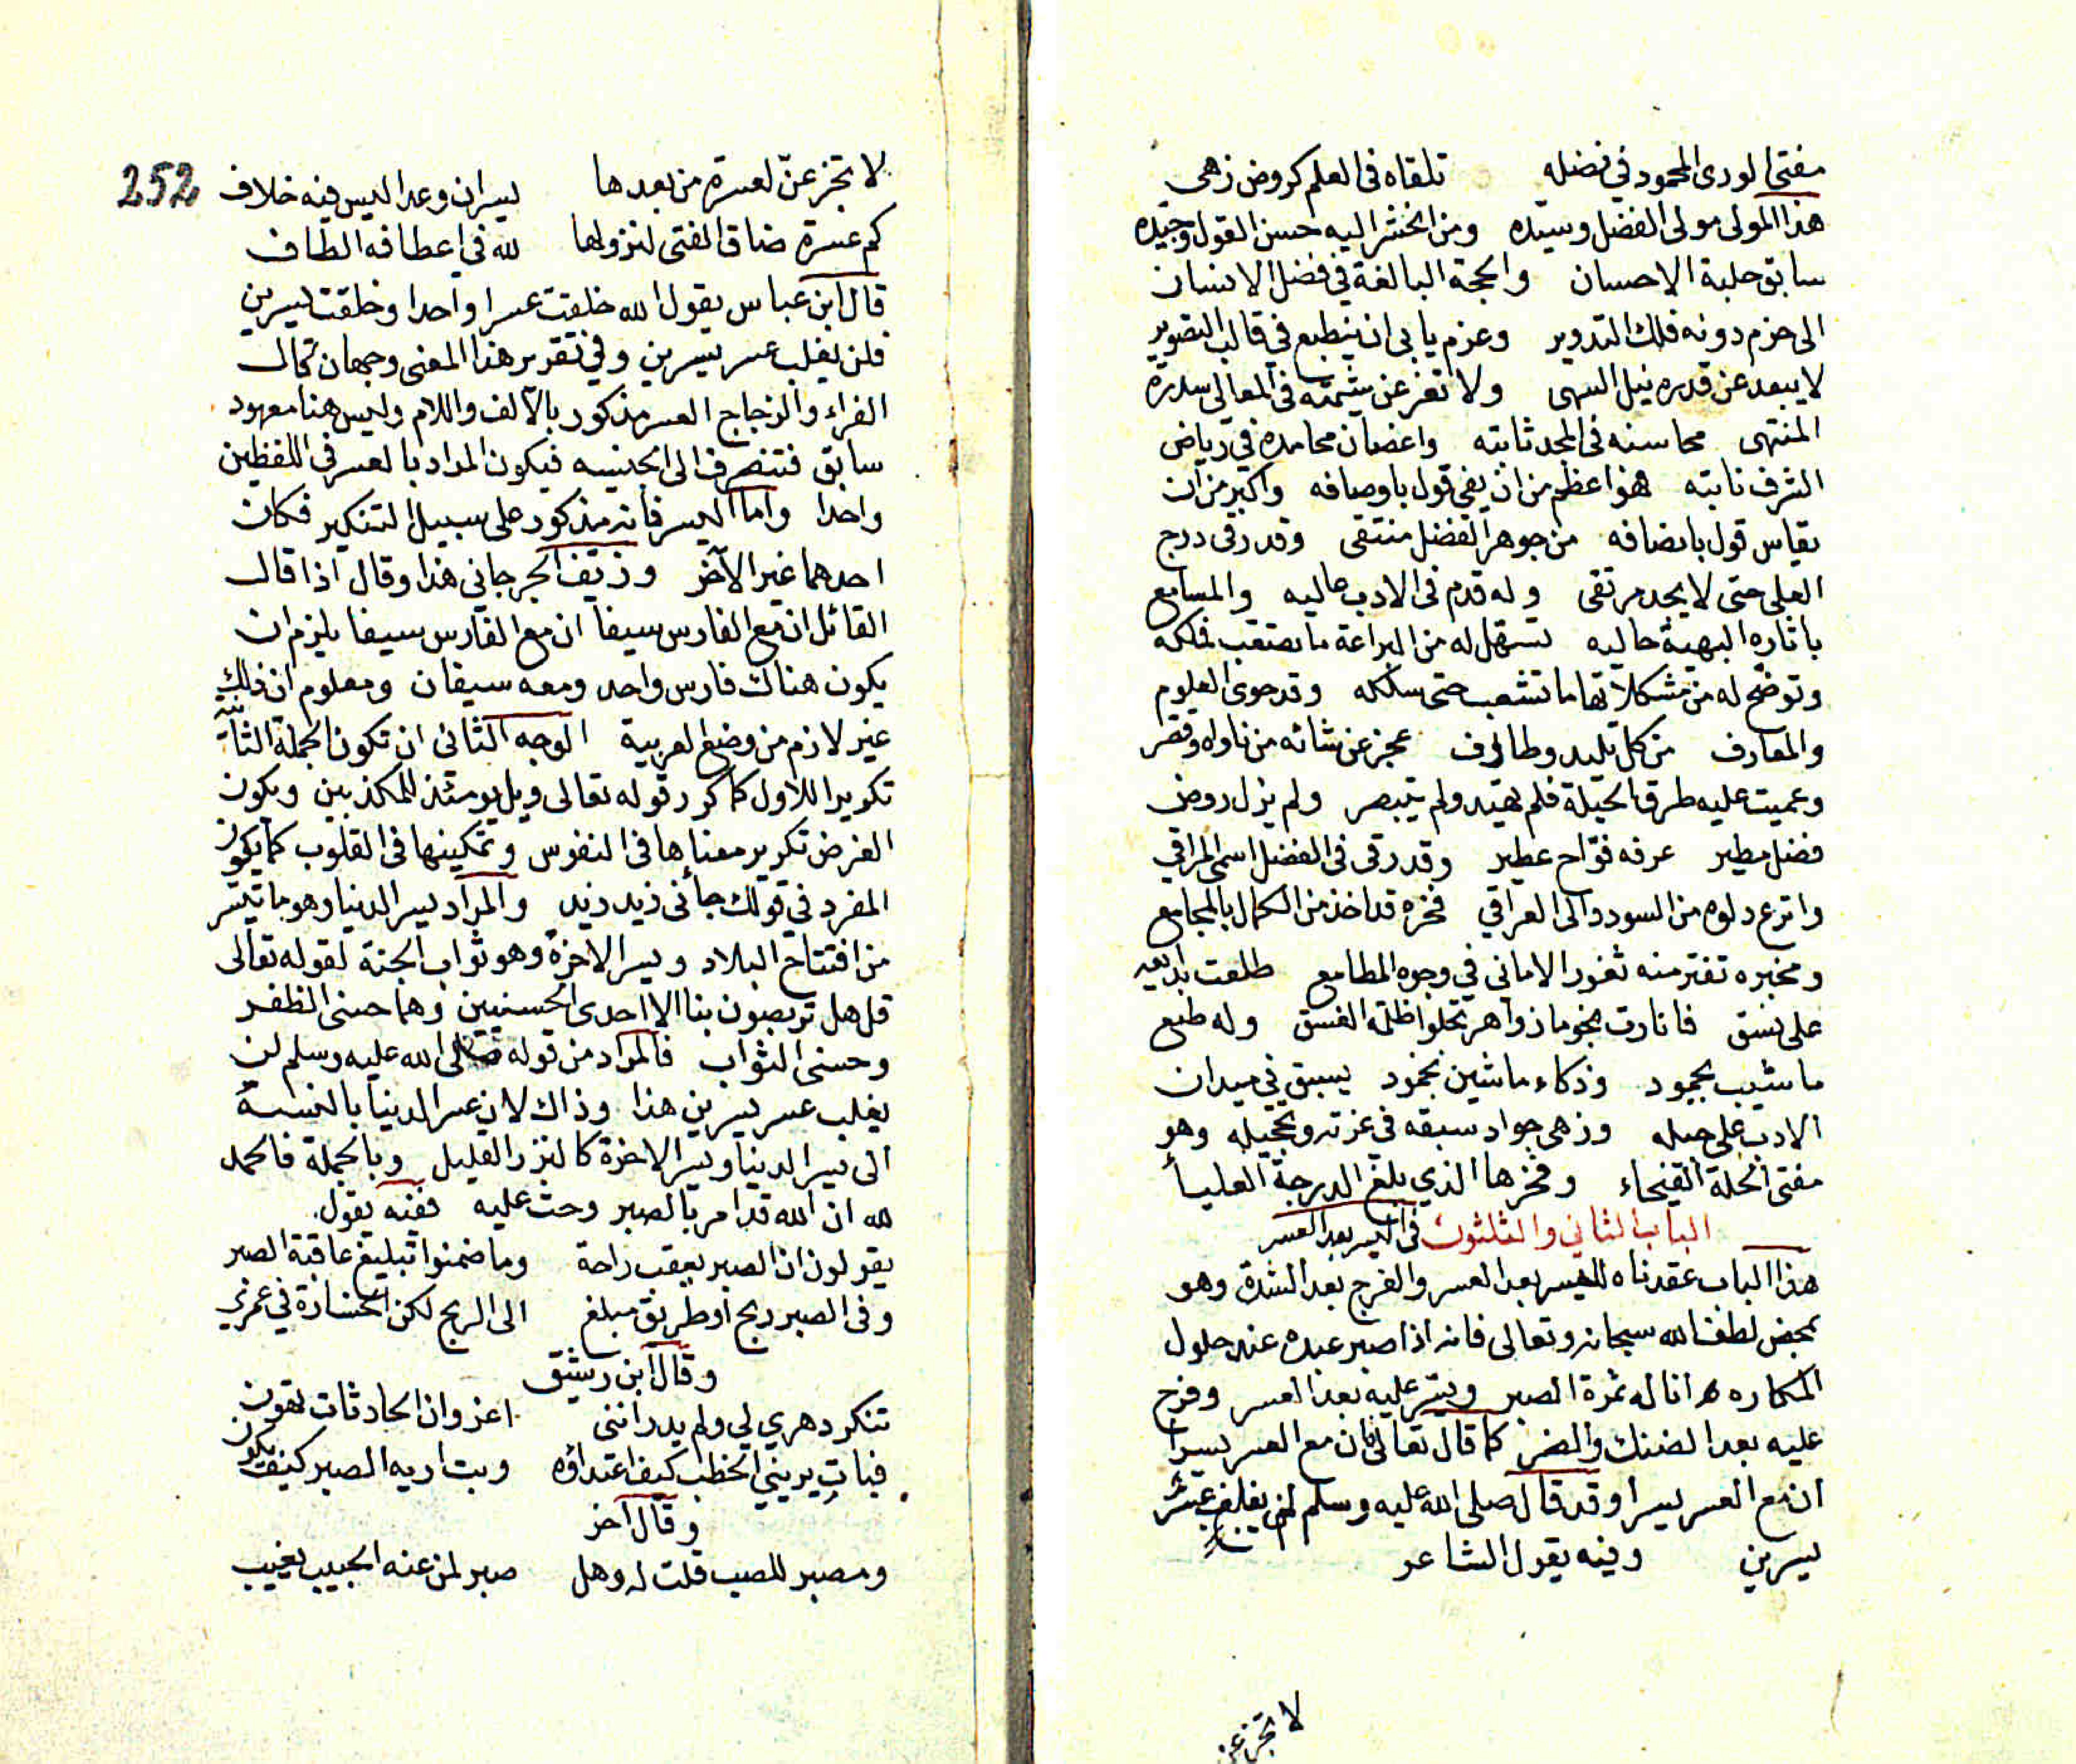 مفتي الورى المحمود في فضله تلقاه في العلم كروض زهي
هذا المولى مولى الفضل وسيده ومن انحشر اليه حسن القول وجيده
سابق حلبة الاحسان والحجة البالغة في فضل الانسان
الى حزم دونه فلك التدوير وعزم يابى ان ينطبع في قالب التصوير
لا يبعد عن قدره نيل السهى ولا تعز عن شيمته في المعالي سدرة
المنتهى محاسنه في المجد ثابته واغصان محامده في رياض
الشرف نابته هو اعظم من ان يفي قول باوصافه واكبر من ان
يقاس قول بانصافه من جوهر الفضل منتقى وقد رقى درج
العلى حتى لا يجد مرتقى وله قدم في الادب عاليه والمسامع
باثاره البهية حاليه تسهل له من البراعة ما يصتعب فملكه
وتوضح له من مشكلاتها ما تشعب حتى سلكه وقد حوى العلوم
والمعارف من كل تليد وطارف عجز عن شائه من ناواه وقصر
وعميت عليه طرق الحيلة فلم يهتد ولم يتبصر ولم يزل روض
فضل مطير عرفه فوّاح عطير وقد رقى في الفضل اسمى المراقي
واترع دلوه من السودد الى العراقي فخره قد اخذ من الكمال بالمجامع
ومخبره تفتر منه ثغور الاماني في وجوه المطامع طلعت بدايعه
على نسق فانارت نجوما زواهر تجلوا ظلمة الغسق وله طبع
ما شيب بجمود وذكاء ما شين بخمود يسبق في ميدان
الادب على جيله وزهى جواد سبقه في غرته وتحجيله وهو
مفتي الحلة الفيحاء وفخرها الذي بلغ الدرجة العلياء
الباب الثاني والثلثون في اليسر بعد العسر
هذا الباب عقدناه لليسر بعد العسر والفرج بعد الشدة وهو
بمحض لطف الله سبحانه وتعالى فانه اذا صبر عبده عند حلول
المكاره انا له ثمرة الصبر ويسّر عليه بعد العسر وفرج
عليه بعد الضنك والضر كما قال تعالى فان مع العسر يسرا
ان مع العسر يسرا وقد قال صلى الله عليه وسلم لن يغلب عسر
يسرين وفيه يقول الشاعر
لا تجزعن
252
لا تجزعنّ لعسرة من بعدها يسران وعدا ليس فيه خلاف
كم عسرة ضاق الفتى لنزولها لله في اعطافه الطاف
قال ابن عباس يقول الله خلقت عسرا واحدا وخلقت يسرين
فلن يغلب عسر يسرين وفي تقرير هذا المعنى وجهان قال
الفراء والزجاج العسر مذكور بالالف واللام وليس هنا معهود
سابق فتنصرف الى الجنسيه فيكون المراد بالعسر في اللفظين
واحدا واما اليسر فانه مذكور على سبيل التنكير فكان
احدهما غير الآخر وزيّف الجرجاني هذا وقال اذا قال
القائل ان مع الفارس سيفا ان مع الفارس سيفا يلزم ان
يكون هناك فارس واحد ومعه سيفان ومعلوم ان ذلك
غير لازم من وضع العربية الوجه الثاني ان تكون الجملة الثانية
تكريرا للاول كما كرر قوله تعالى ويل يومئذ للمكذبين ويكون
الغرض تكرير معناها في النفوس وتمكينها في القلوب كما يكون
المفرد في قولك جائني زيد زيد والمراد يسر الدنيا وهو ما تيسر
من افتتاح البلاد ويسر الاخرة وهو ثواب الجنة لقوله تعالى
قل هل تربصون بنا الا احدى الحسنيين وهما حسنى الظفر
وحسنى الثواب فالمراد من قوله صلى الله عليه وسلم لن
يغلب عسر يسرين هذا وذاك لان عسر الدنيا بالنسبة
الى يسر الدنيا ويسر الاخرة كالنزر القليل وبالجملة فالحمد
لله ان الله قد امر بالصبر وحث عليه ففيه يقول
يقولون ان الصبر يعقب راحة وما ضمنوا تبليغ عاقبة الصبر
وفي الصبر ربح او طريق مبلغ الى الربح لكن الخسارة في عمري
وقال ابن رشيق
تنكر دهري لي ولم يدر انني اعز وان الحادثات تهون
فبات يريني الخطب كيف اعتداؤه وبت اريه الصبر كيف يكون
وقال آخر
ومصبر للصب قلت له وهل صبر لمن عنه الحبيب يغيب